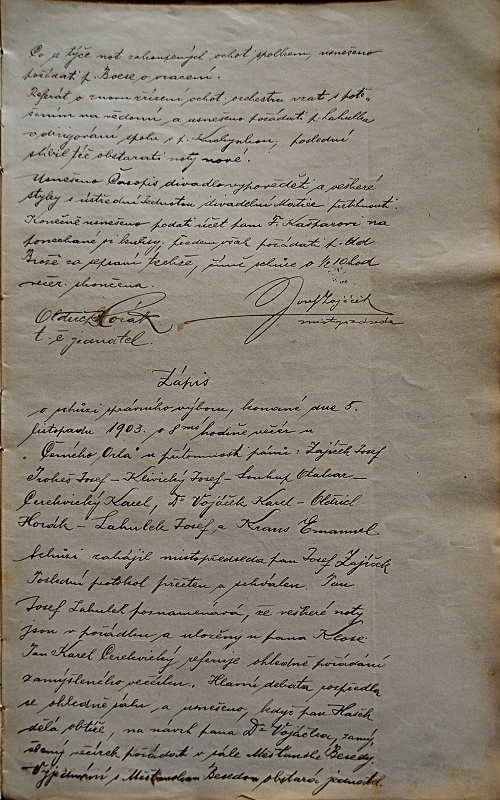 Co se týče not zakoupených ochot. spolkem, usnešeno
požádati p. Bocse o vracení.
Referát o znovuzřízení ochot. orchestru vzat s potě-
šením na vědomí, a usnešeno požádati p. Lahulka
v dirigování spolu s p. poslední
slíbil též obstarati noty nové.
Usnešeno Časopis divadlo vypověděti a veškeré
styky s ústřední Jednotou divadelní Matice přetrhnouti.
Konečně usnešeno podati účet panu F. Kašparovi na
ponechané si kulisy, předem však požádati p. Old
Brože za sepsaní téhož, schůze o ½10 hod
večer skončena.
Oldřich Horák
t. č. jednatel.
Josef Zajíček
místopředseda
Zápis
o schůzi správního výboru, konané dne 5.
listopadu 1903. o 8mé hodině večer u
"Černého Orla" u přítomnosti pánů: Zajíček Josef
Josef – Klivický Josef – Soukup Otakar –
Cerekvický Karel, Dr Vojáček Karel – Oldřich
Horák – Lahulek Josef, a Kraus Emanuel
Schůzi zahájil místopředseda pan Josef Zajíček
Poslední protokol přečten a schválen. Pan
Josef Lahulek poznamenává, že veškeré noty
jsou v pořádku a uloženy u pana Klose.
Pan Karel Cerekvický referuje ohledně pořádání
zamýšleného večírku. Hlavní debata rozpředla
se ohledně sálu a usnešeno, když pan Hašek
dělá obtíže, na návrh pana Dr Vojáčka, zamý-
šlený večírek pořádati v sále Měšťanské Besedy.
Vyjednávání s Měšťanskou Besedou obstará jednatel.